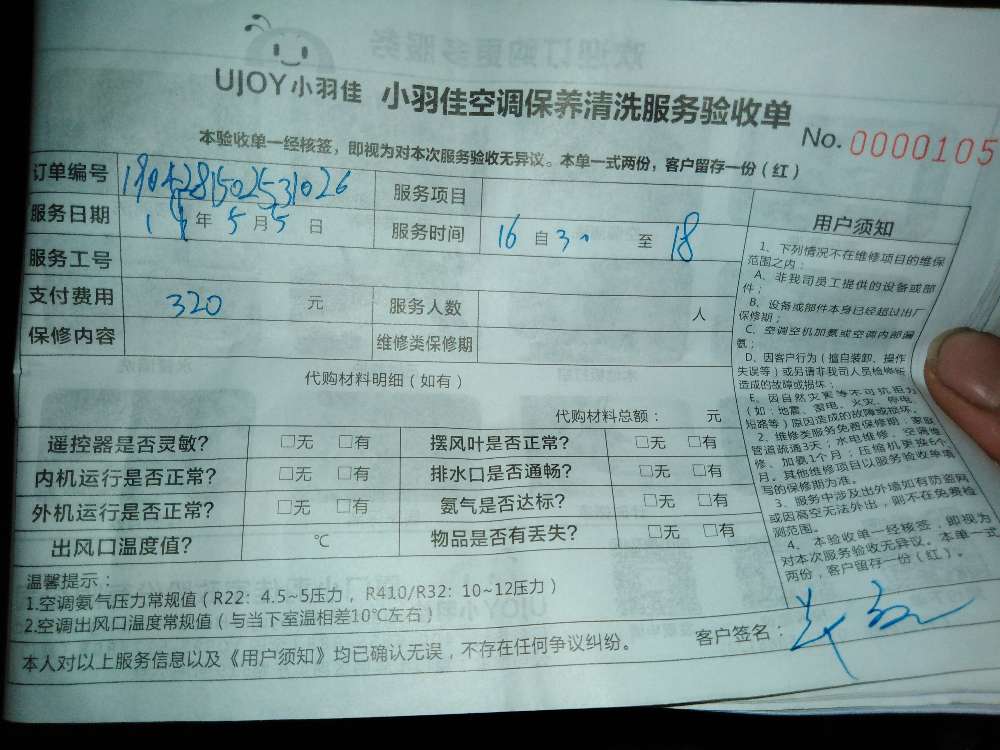 UJOY小羽佳 小羽佳空调保养清洗服务验收单
No. 0000105
本验收单一经核签，即视为对本次服务验收无异议。本单一式两份，客户留存一份（红）
订单编号 服务项目
服务日期 年 5 月 5 日 服务时间 16 自 30 至 18
服务工号
支付费用 320 元 服务人数 人
保修内容 维修类保修期
代购材料明细（如有）
代购材料总额： 元
遥控器是否灵敏？ □无 □有 摆风叶是否正常？ □无 □有
内机运行是否正常？ □无 □有 排水口是否通畅？ □无 □有
外机运行是否正常？ □无 □有 氨气是否达标？ □无 □有
出风口温度值？ ℃ 物品是否有丢失？ □无 □有
用户须知
1、下列情况不在维修项目的维保
范围之内：
A、非我司员工提供的设备或部
件；
B、设备或部件本身已经超过出厂
保修期；
C、空调空机加氨或空调内部漏
氨；
D、因客户行为（擅自装卸、操作
失误等）或另请非我司人员检修所
造成的故障或损坏；
E、因自然灾害等不可抗拒力
（如：地震、雷电、火灾、停电、
短路等）原因造成的故障或损坏。
2、维修类服务免费保修期：家政
管道疏通3天；水电维修、空调维
修、加氨1个月；压缩机更换6个
月。其他维修项目以服务验收单填
写的保修期为准。
3、服务中涉及出外墙如有防盗网
或因高空无法外出，则不在免费检
测范围。
4、本验收单一经核签，即视为
对本次服务验收无异议。本单一式
两份，客户留存一份（红）。
温馨提示：
1.空调氨气压力常规值（R22：4.5~5压力，R410/R32：10~12压力）
2.空调出风口温度常规值（与当下室温相差10℃左右）
本人对以上服务信息以及《用户须知》均已确认无误，不存在任何争议纠纷。 客户签名：